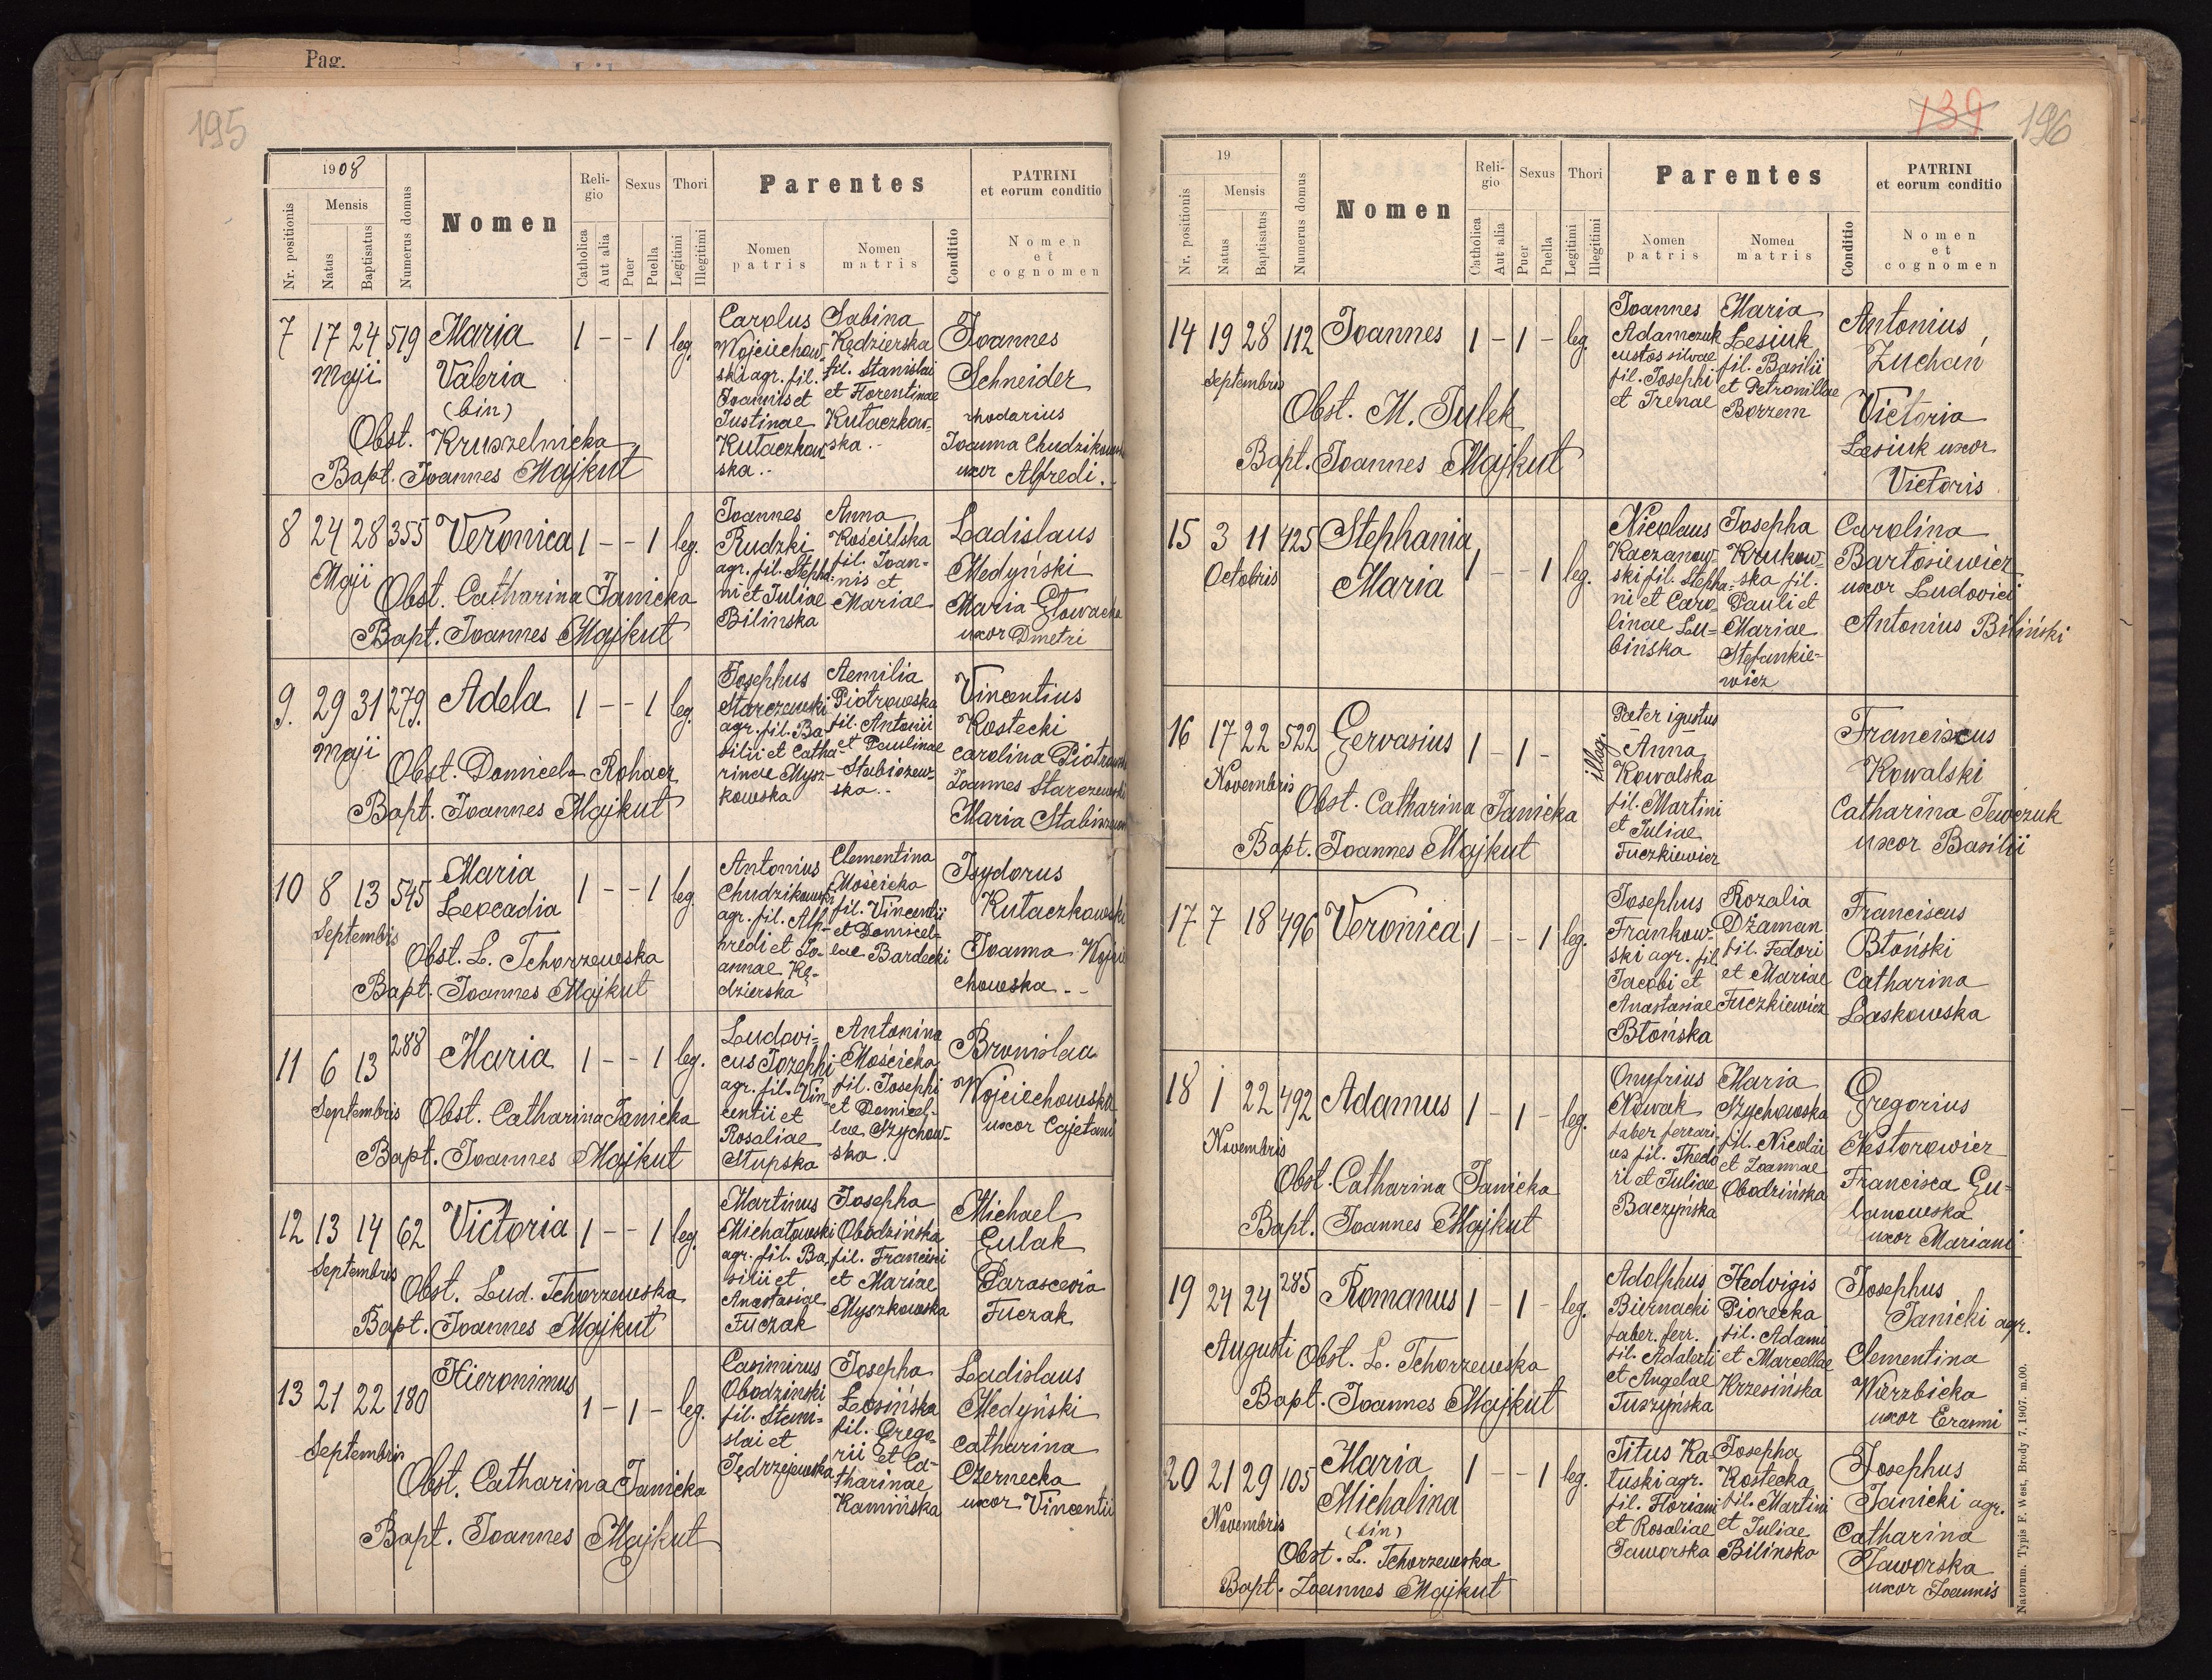 Pag.
195
1908
Nr. positionis
Mensis
Natus
Baptisatus
Numerus domus
Nomen
Religio
Catholica
Aut alia
Sexus
Puer
Puella
Thori
Legitimi
Illegitimi
Parentes
Nomen patris
Nomen matris
Conditio
PATRINI
et eorum conditio
Nomen
et
cognomen
7 17 24 519 Maria 1 - - 1 leg.
Maji Valeria
(bin)
Obst. Kruszelnicka
Bapt. Joannes Majkut
Carolus
Wojciechow-
ski agr. fil.
Joannis et
Justinae
Kułaczkow-
ska.-
Sabina
Kędzierska
fil. Stanislai
et Florentinae
Kułaczkow-
ska.-
Joannes
Schneider
rhodarius
Joanna Chudzikow
uxor Alfredi.
8 24 28 355 Veronica 1 - - 1 leg.
Maji
Obst. Catharina Janicka
Bapt. Joannes Majkut
Joannes
Rudzki
agr. fil. Stepha-
ni et Juliae
Bilinska
Anna
Kościelska
fil. Joan-
nis et
Mariae
Ladislaus
Medyński
Maria Głowacka
uxor Dmetri
9. 29 31 279. Adela 1 - - 1 leg.
Maji
Obst. Domicela Rohacz
Bapt. Joannes Majkut
Josephus
Starczewski
agr. fil. Ba-
silii et Catha-
rinae Mysz-
kowska
Aemilia
Piotrowska
fil. Antonii
et Paulinae
Stabiszew-
ska.-
Vincentius
Kostecki
Carolina Piotrowska
Joannes Starczewski
Maria Stabiszew
10 8 13 545 Maria 1 - - 1 leg.
Leocadia
Septembris
Obst. L. Tchorzewska
Bapt. Joannes Majkut
Antonius
Chudzikowski
agr. fil. Alph-
redi et Jo-
annae Kę-
dzierska
Clementina
Mościcka
fil. Vincentii
et Domicel-
lae Bardecki
Isydorus
Kułaczkowski
Joanna Wojcie
chowska.-
11 6 13 288 Maria 1 - - 1 leg.
Septembris
Obst. Catharina Janicka
Bapt. Joannes Majkut
Ludovi-
cus Jozephi
agr. fil. Vin-
centii et
Rosaliae
Słupska
Antonina
Mościcka
fil. Josephi
et Domicel-
lae Szychow-
ska.
Bronislaa
Wojciechowska
uxor Cajetani
12 13 14 62 Victoria 1 - - 1 leg.
Septembris
Obst. Lud. Tchorzewska
Bapt. Joannes Majkut
Martinus
Michałowski
agr. fil. Ba-
silii et
Anastasiae
Fuczak
Josepha
Obodzińska
fil. Francisci
et Mariae
Myszkowska
Michael
Gulak
Parascevia
Fuczak
13 21 22 180 Hieronimus 1 - 1 - leg.
Septembris
Obst. Catharina Janicka
Bapt. Joannes Majkut
Casimirus
Obodzinski
fil. Stani-
slai et
Jędrzejewska
Josepha
Łosińska
fil. Grego-
rii et Ca-
tharinae
Kamińska
Ladislaus
Medyński
Catharina
Czernecka
uxor Vincentii
139 196
19
Nr. positionis
Mensis
Natus
Baptisatus
Numerus domus
Nomen
Religio
Catholica
Aut alia
Sexus
Puer
Puella
Thori
Legitimi
Illegitimi
Parentes
Nomen patris
Nomen matris
Conditio
PATRINI
et eorum conditio
Nomen
et
cognomen
14 19 28 112 Joannes 1 - 1 - leg.
Septembris
Obst. M. Tulek
Bapt. Joannes Majkut
Joannes
Adamczuk
custos silvae
fil. Josephi
et Irenae
Maria
Lesiuk
fil. Basilii
et Petronillae
Borzem
Antonius
Zuchań
Victoria
Lesiuk uxor
Victoris
15 3 11 425 Stephania
Octobris Maria 1 - - 1 leg.
Nicolaus
Kaczanow-
ski fil. Stepha-
ni et Caro-
linae Lu-
bińska
Josepha
Krukow-
ska fil.
Pauli et
Mariae
Stefankie-
wicz
Carolina
Bartosiewicz
uxor Ludovici
Antonius Biliński
16 17 22 522 Gervasius 1 - 1 - illeg.
Novembris
Obst. Catharina Janicka
Bapt. Joannes Majkut
Pater igustus
Anna
Kowalska
fil. Martini
et Juliae
Fuczkiewicz
Franciscus
Kowalski
Catharina Jewczuk
uxor Basilii
17 7 18 496 Veronica 1 - - 1 leg.
Josephus
Frankow-
ski agr. fil.
Jacobi et
Anastasiae
Błońska
Rozalia
Dżaman
fil. Fedori
et Mariae
Fuczkiewicz
Franciscus
Błoński
Catharina
Laskowska
18 1 22 492 Adamus 1 - 1 - leg.
Novembris
Obst. Catharina Janicka
Bapt. Joannes Majkut
Onyfrius
Nowak
faber ferrari-
us fil. Thedo
ri et Juliae
Baczyńska
Maria
Szychowska
fil. Nicolai
et Joannae
Obodzińska
Gregorius
Nestorowicz
Francisca Gu-
lanowska
uxor Mariani
19 24 24 285 Romanus 1 - 1 - leg.
Augusti
Obst. L. Tchorzewska
Bapt. Joannes Majkut
Adolphus
Biernacki
faber. ferr.
fil. Adalerti
et Angelae
Tuszyńska
Hedvigis
Piorecka
fil. Adami
et Marcellae
Krzesińska
Josephus
Janicki agr.
Clementina
Wierzbicka
uxor Erasmi
20 21 29 105 Maria 1 - - 1 leg.
Michalina
Novembris
(bin)
Obst. L. Tchorzewska
Bapt. Joannes Majkut
Titus Ka-
łuski agr.
fil. Floriani
et Rosaliae
Jaworska
Josepha
Kostecka
fil. Martini
et Juliae
Bilinska
Josephus
Janicki agr.
Catharina
Jaworska
uxor Joannis
Natorum. Typis F. West, Brody 7. 1907. m.00.